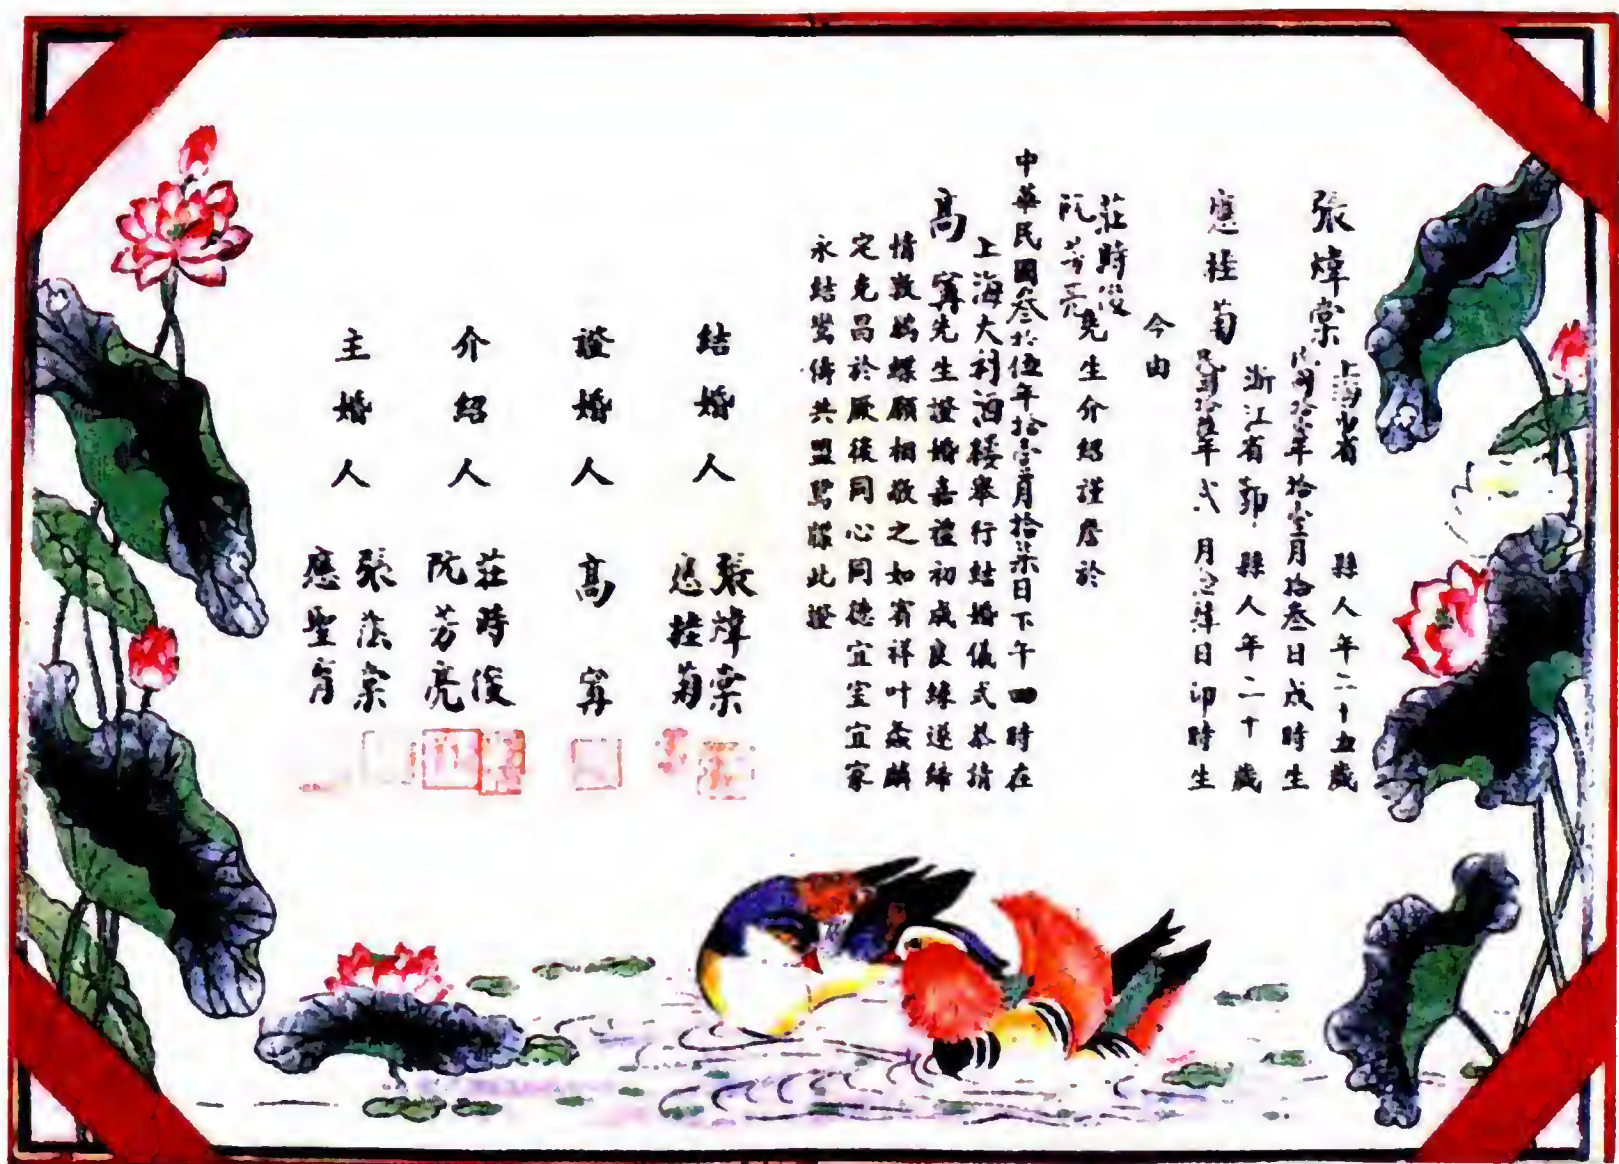 張煒棠
上海市省 縣人年二十五歲
民國拾壹年拾壹月拾叁日戌時生
應桂菊
浙江省鄞縣人年二十歲
民國拾陸年弍月念肆日卯時生
今由
莊時俊
阮芳亮
先生介紹謹詹於
中華民國叁拾伍年拾壹月拾柒日下午四時在
上海大利酒樓舉行結婚儀式恭請
高寗先生證婚嘉禮初成良緣遂締
情敦鶼鰈願相敬之如賓祥叶螽麟
定克昌於厥後同心同德宜室宜家
永結鸞儔共盟鴛牒此證
結婚人 張煒棠 應桂菊
證婚人 高寗
介紹人 莊時俊 阮芳亮
主婚人 張蔭棠 應聖育